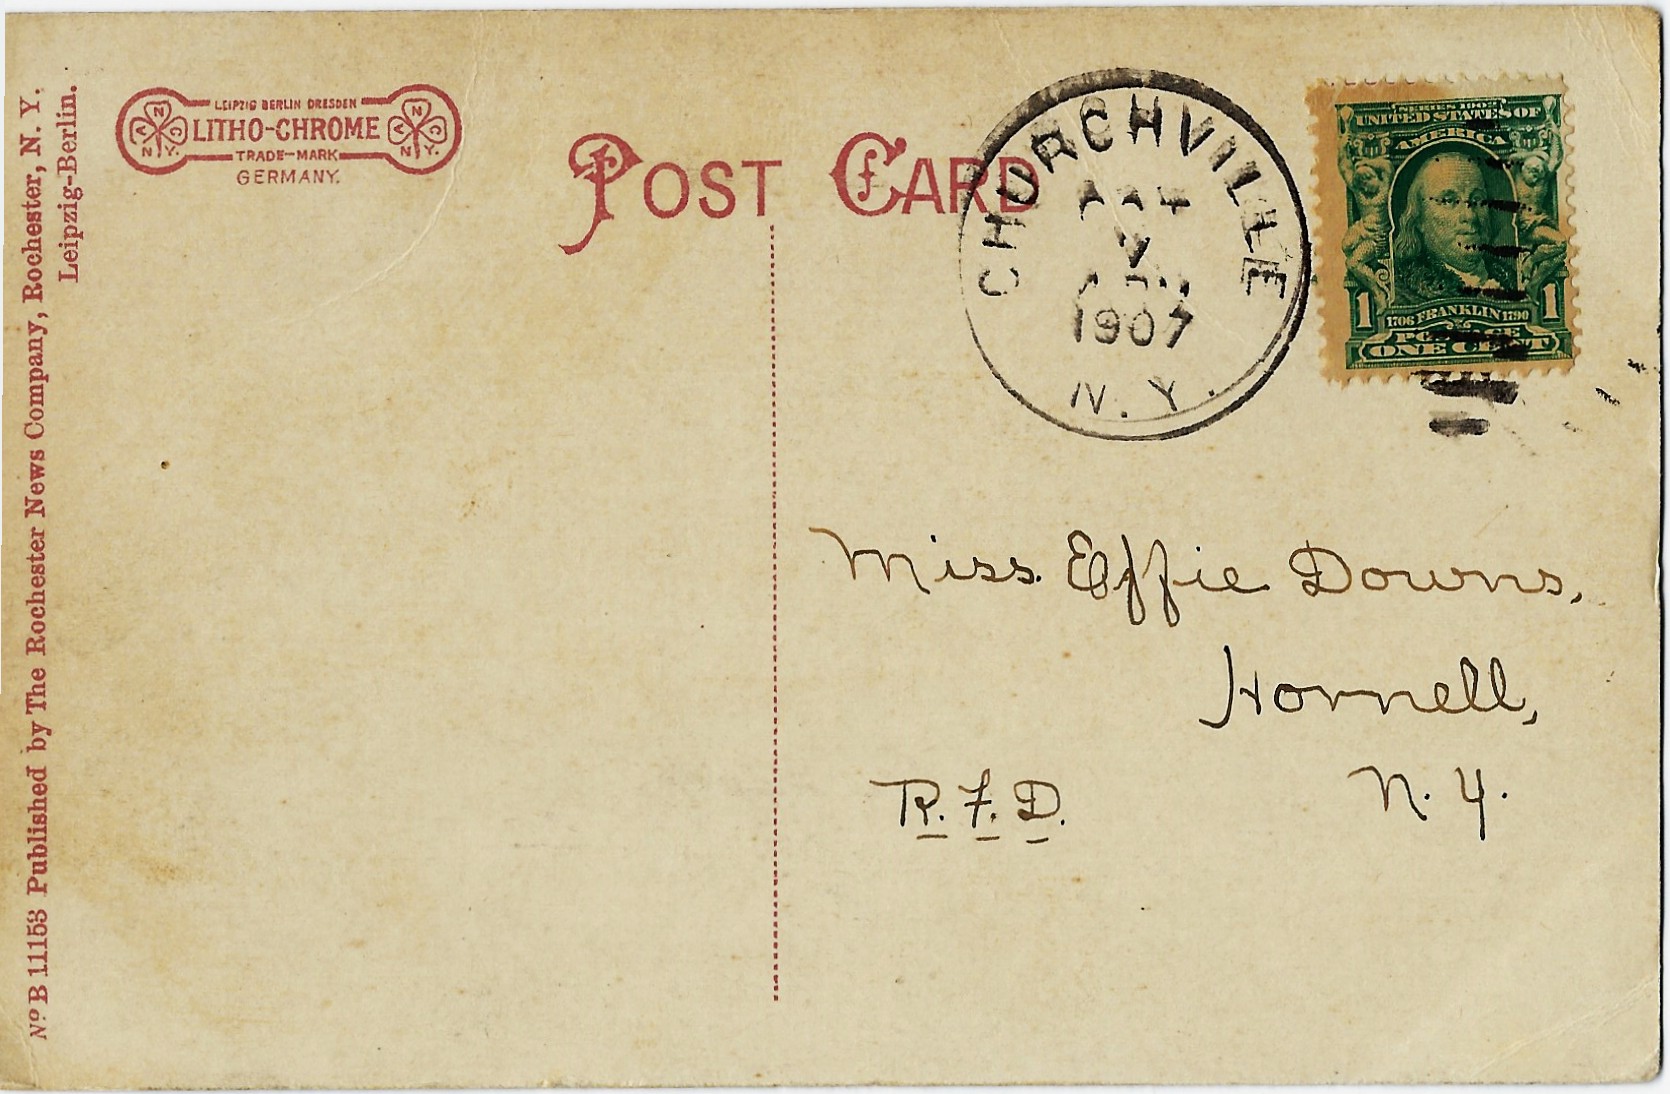 Nº B 11153 Published by The Rochester News Company, Rochester, N. Y.
Leipzig-Berlin.
LEIPZIG BERLIN DRESDEN
LITHO-CHROME
TRADE-MARK
GERMANY.
POST CARD
CHURCHVILLE
1907
N. Y.
SERIES 1902
UNITED STATES OF
AMERICA
1 1706 FRANKLIN 1790 1
POSTAGE
ONE CENT
Miss. Effie Downs,
Hornell,
R. F. D. N. Y.